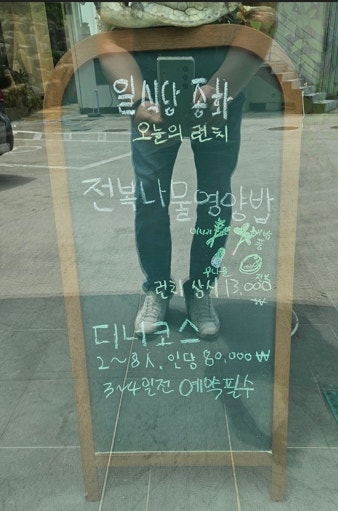 일식당 종화
오늘의 런치
전복나물영양밥
런치 13,000
₩
디너코스
2~8人. 인당 80,000₩
3~4일전 예약필수